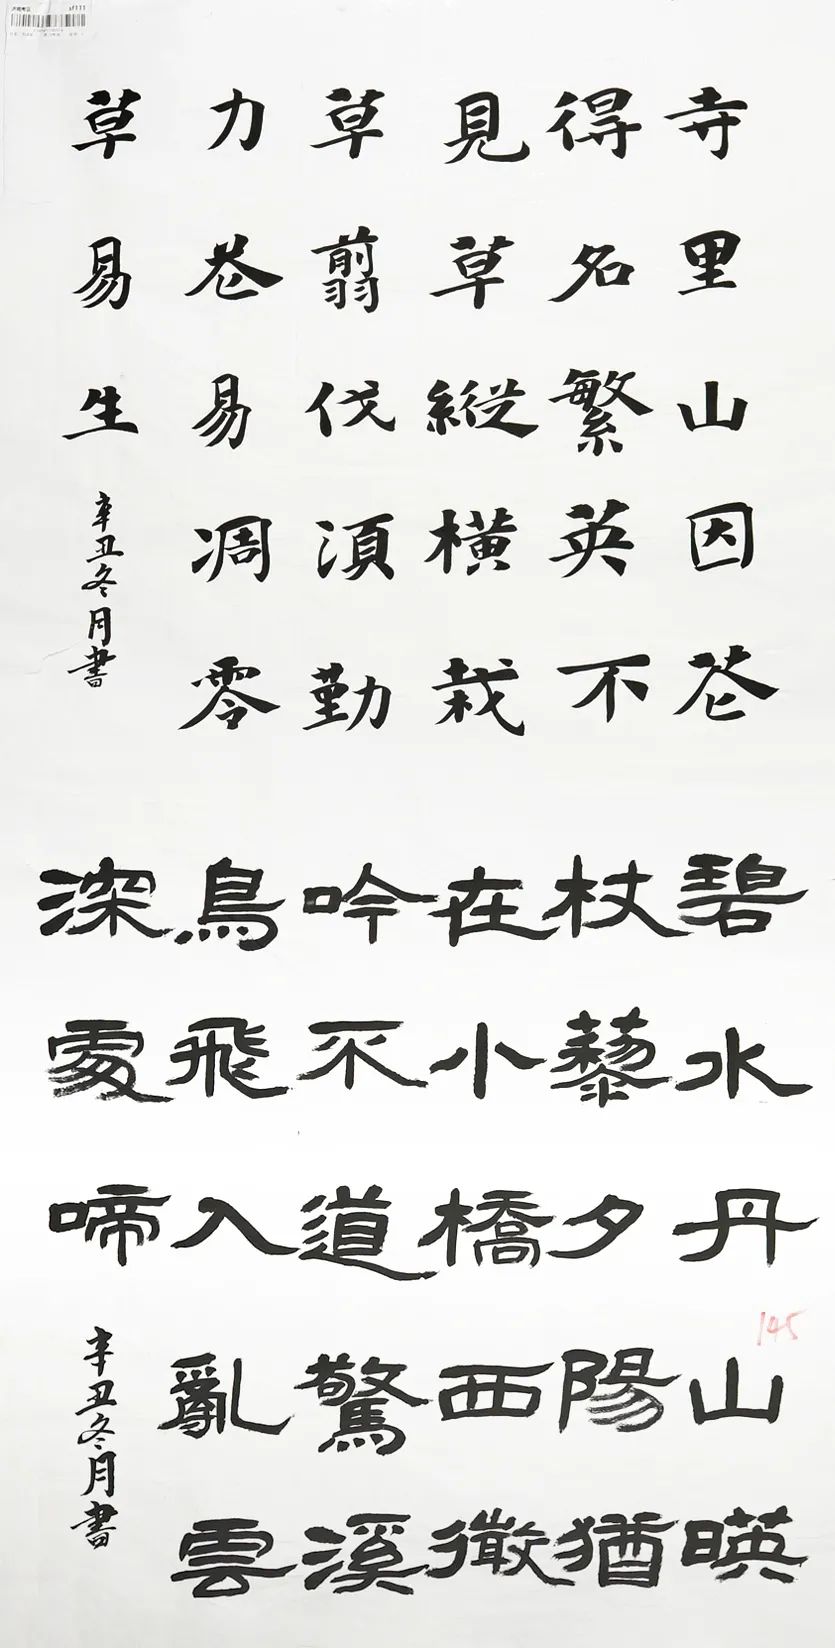 寺里山因花
得名繁英不
見草縱橫栽
草翦伐須勤
力花易凋零
草易生
辛丑冬月書
碧水丹山暎
杖藜夕陽猶
在小橋西微
吟不道驚溪
鳥飛入亂雲
深處啼
辛丑冬月書
145